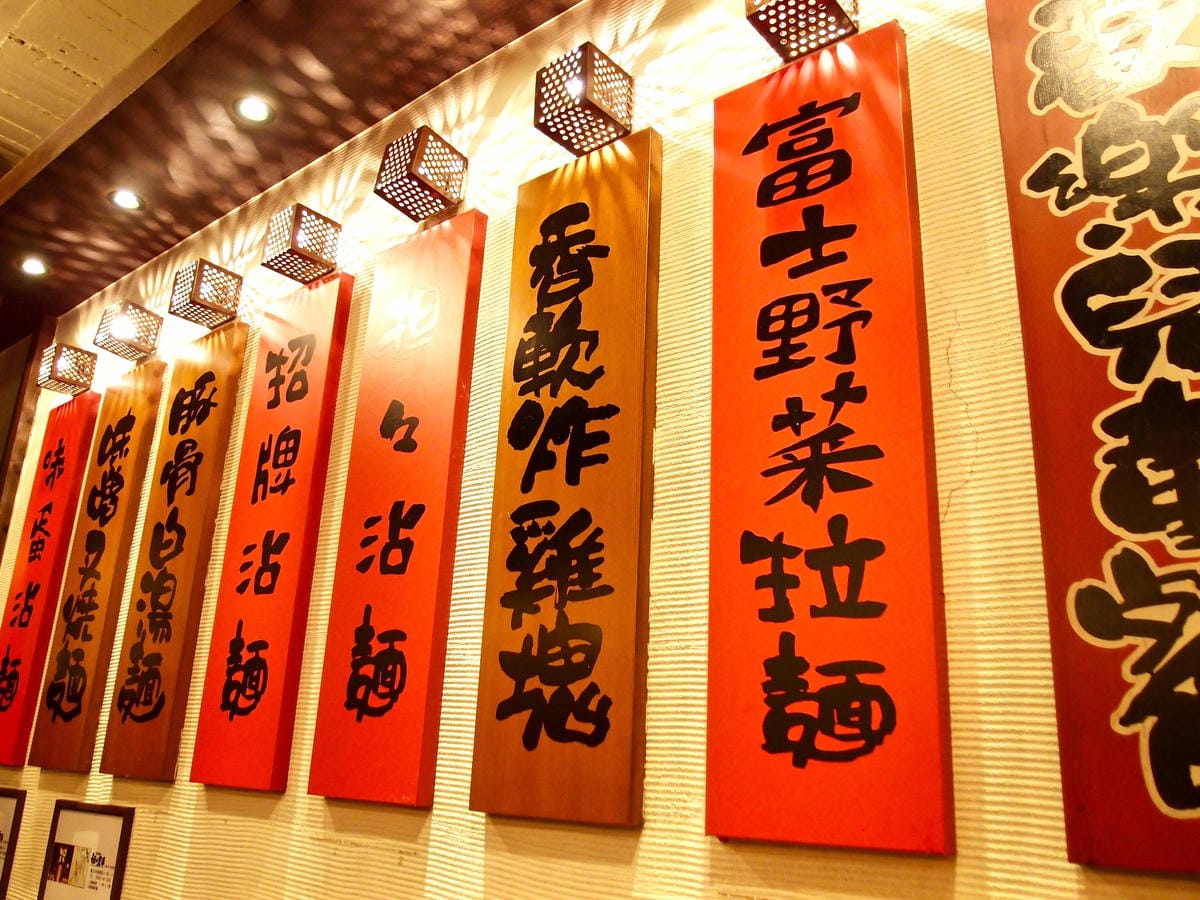 富士野菜拉麵
香軟炸雞塊
担々沾麵
招牌沾麵
豚骨白湯麵
味噌叉燒麵
味蛋沾麵